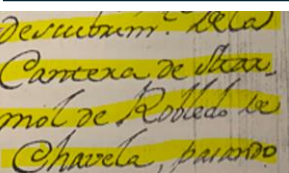 descubrim.º de la
Cantera de Mar-
mol de Robledo de
Chavela, pasando